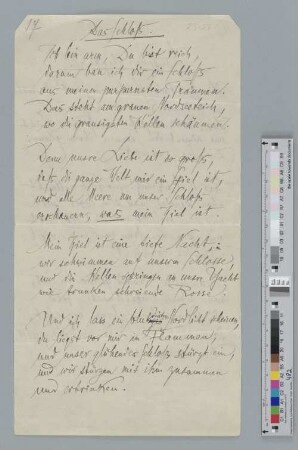 Das Schloß.
Ich bin arm, Du bist reich,
darum bau ich dir ein Schloß
aus meinen purpurnsten Träumen.
Das steht am grauen Nordseedeich,
wo die grausigsten Wellen schäumen.
Denn unsre Liebe ist so groß,
daß die ganze Welt mir ein Spiel ist,
und alle Meere um unser Schloß
erschauern, was mein Ziel ist.
Mein Ziel ist eine tiefe Nacht;
wir schwimmen mit unserm Schlosse,
und die Wellen springen an unsre Yacht
wie trunken schreiende Rosse.
Und ich lass ein Nordlicht
du liegst vor mir in Flammen,
und unser glühendes Schloß stürzt ein,
und wir stürzen mit ihm zusammen
und ertrinken.